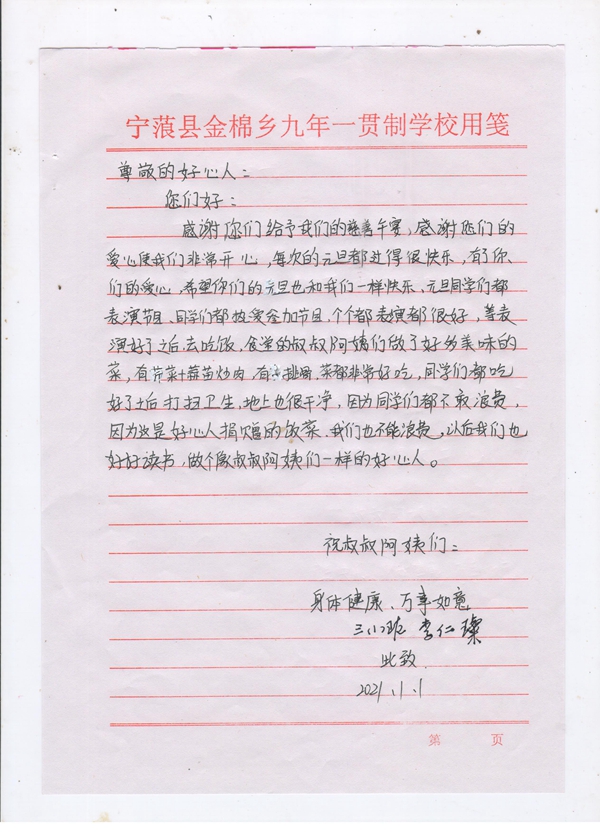 宁蒗县金棉乡九年一贯制学校用笺
尊敬的好心人：
您们好：
感谢你们给予我们的慈善午宴，感谢您们的
爱心使我们非常开心，每次的元旦都过得很快乐，有了你
们的爱心，希望你们的元旦也和我们一样快乐、元旦同学们都
表演节目，同学们都热衷参加节目，个个都表演都很好，等表
演好了之后去吃饭，食堂的叔叔阿姨们做了好多美味的
菜，有芹菜+蒜苗炒肉，有排骨，菜都非常好吃，同学们都吃
好了之后打扫卫生，地上也很干净，因为同学们都不敢浪费，
因为这是好心人捐赠的饭菜，我们也不能浪费，以后我们也
好好读书，做个像叔叔阿姨们一样的好心人。
祝叔叔阿姨们：
身体健康、万事如意
三(1)班 李仁璨
此致.
2021.1.1
第 页